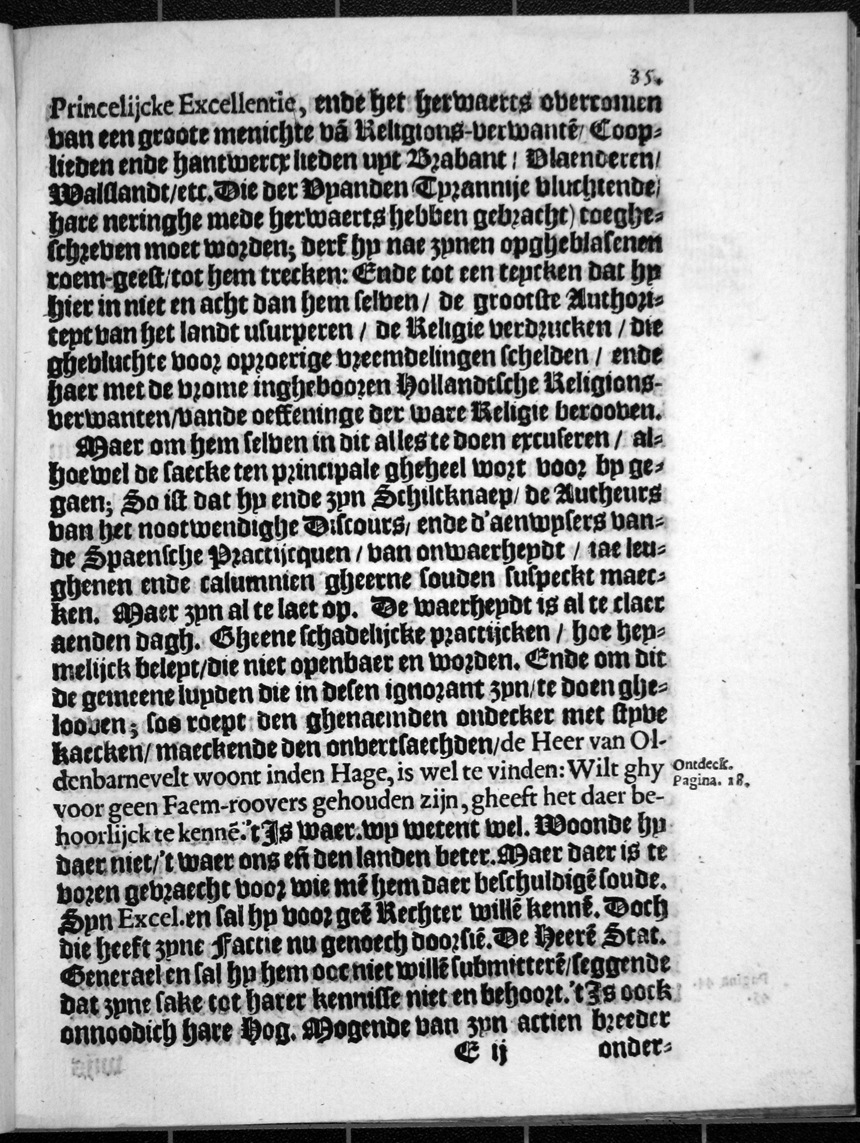 35.
Princelijcke Excellentie, ende het herwaerts overcomen
van een groote menichte vā Religions-verwantē/ Coop-
lieden ende hantwercx lieden uyt Brabant/ Vlaenderen/
Walslandt/etc. Die der Vyanden Tyrannije vluchtende/
hare neringhe mede herwaerts hebben gebracht) toeghe-
schreven moet worden; derf hy nae zynen opgheblasenen
roem-geest/tot hem trecken: Ende tot een teycken dat hy
hier in niet en acht dan hem selven/ de grootste Authori-
teyt van het landt usurperen / de Religie verdrucken / die
ghevluchte voor oproerige vreemdelingen schelden / ende
haer met de vrome inghebooren Hollandtsche Religions-
verwanten/vande oeffeninge der ware Religie berooven.
Maer om hem selven in dit alles te doen excuseren/ al-
hoewel de saecke ten principale gheheel wort voor by ge-
gaen; So ist dat hy ende zyn Schiltknaep/ de Autheurs
van het nootwendighe Discours/ ende d'aenwysers van-
de Spaensche Practijcquen / van onwaerheydt / iae leu-
ghenen ende calumnien gheerne souden suspeckt maec-
ken. Maer zyn al te laet op. De waerheydt is al te claer
aenden dagh. Gheene schadelijcke practijcken / hoe hey-
melijck beleyt/die niet openbaer en worden. Ende om dit
de gemeene luyden die in desen ignorant zyn/te doen ghe-
looven; soo roept den ghenaemden ondecker met styve
kaecken/ maeckende den onvertsaechden/de Heer van Ol-
denbarnevelt woont inden Hage, is wel te vinden: Wilt ghy
Ontdeck.
Pagina. 18.
voor geen Faem-roovers gehouden zijn, gheeft het daer be-
hoorlijck te kennē. 't Is waer. wy wetent wel. Woonde hy
daer niet/'t waer ons eñ den landen beter. Maer daer is te
voren gevraecht voor wie mē hem daer beschuldigē soude.
Syn Excel. en sal hy voor geē Rechter willē kennē. Doch
die heeft zyne Factie nu genoech doorsiē. De Heerē Stat.
Generael en sal hy hem ooc niet willē submitterē/seggende
dat zyne sake tot harer kennisse niet en behoort. 't Is oock
onnoodich hare Hog. Mogende van zyn actien breeder
E ij
onder-